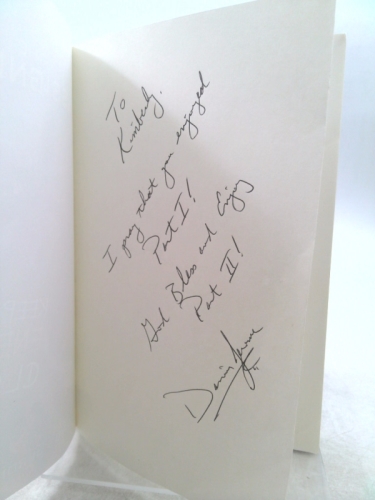 To
Kimberly,
I pray that you enjoyed
Part I!
God Bless and Enjoy
Part II!